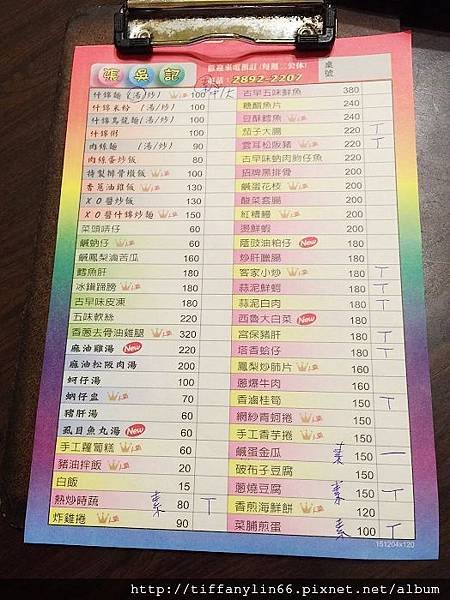 張吳記
歡迎來電預訂(每週二公休)
電話:2892-2207
桌號
什錦麵(湯/炒) 100
什錦米粉(湯/炒) 100
什錦烏龍麵(湯/炒) 100
什錦粥 100
肉絲麵(湯/炒) 90
肉絲蛋炒飯 80
特製排骨燉飯 100
香蔥油雞飯 130
XO醬炒飯 130
XO醬什錦炒麵 150
菜頭哖仔 60
鹹蚋仔 60
鹹鳳梨滷苦瓜 160
鱈魚肝 180
冰鎮蹄膀 180
古早味皮凍 180
五味軟絲 220
香蔥去骨油雞腿 320
麻油雞湯 New 220
麻油松阪肉湯 200
蚵仔湯 100
蚋仔湯 70
豬肝湯 60
虱目魚丸湯 New 70
手工蘿蔔糕 60
豬油拌飯 20
白飯 15
熱炒時蔬 素 80
炸雞捲 90
古早五味鮮魚 380
糖醋魚片 240
豆酥鱈魚 240
茄子大腸 230
雲耳松阪豬 230
古早味蚋肉飿仔魚 200
招牌黑排骨 200
鹹蛋花枝 200
酸菜套腸 200
紅糟鰻 200
燙鮮蝦 200
蔭豉油粿仔 New 180
炒肝臘腸 180
客家小炒 180
蒜泥鮮蚵 180
蒜泥白肉 180
西魯大白菜 New 180
宮保豬肝 180
塔香蛤仔 180
鳳梨炒肺片 160
蔥爆牛肉 160
香滷桂筍 160
網紗青蚵捲 160
手工香芋捲 160
鹹蛋金瓜 素 150
破布子豆腐 150
蔥燒豆腐 素 150
香煎海鮮餅 120
菜脯煎蛋 素 100
151204x120
http://tiffanylin66.pixnet.net/album